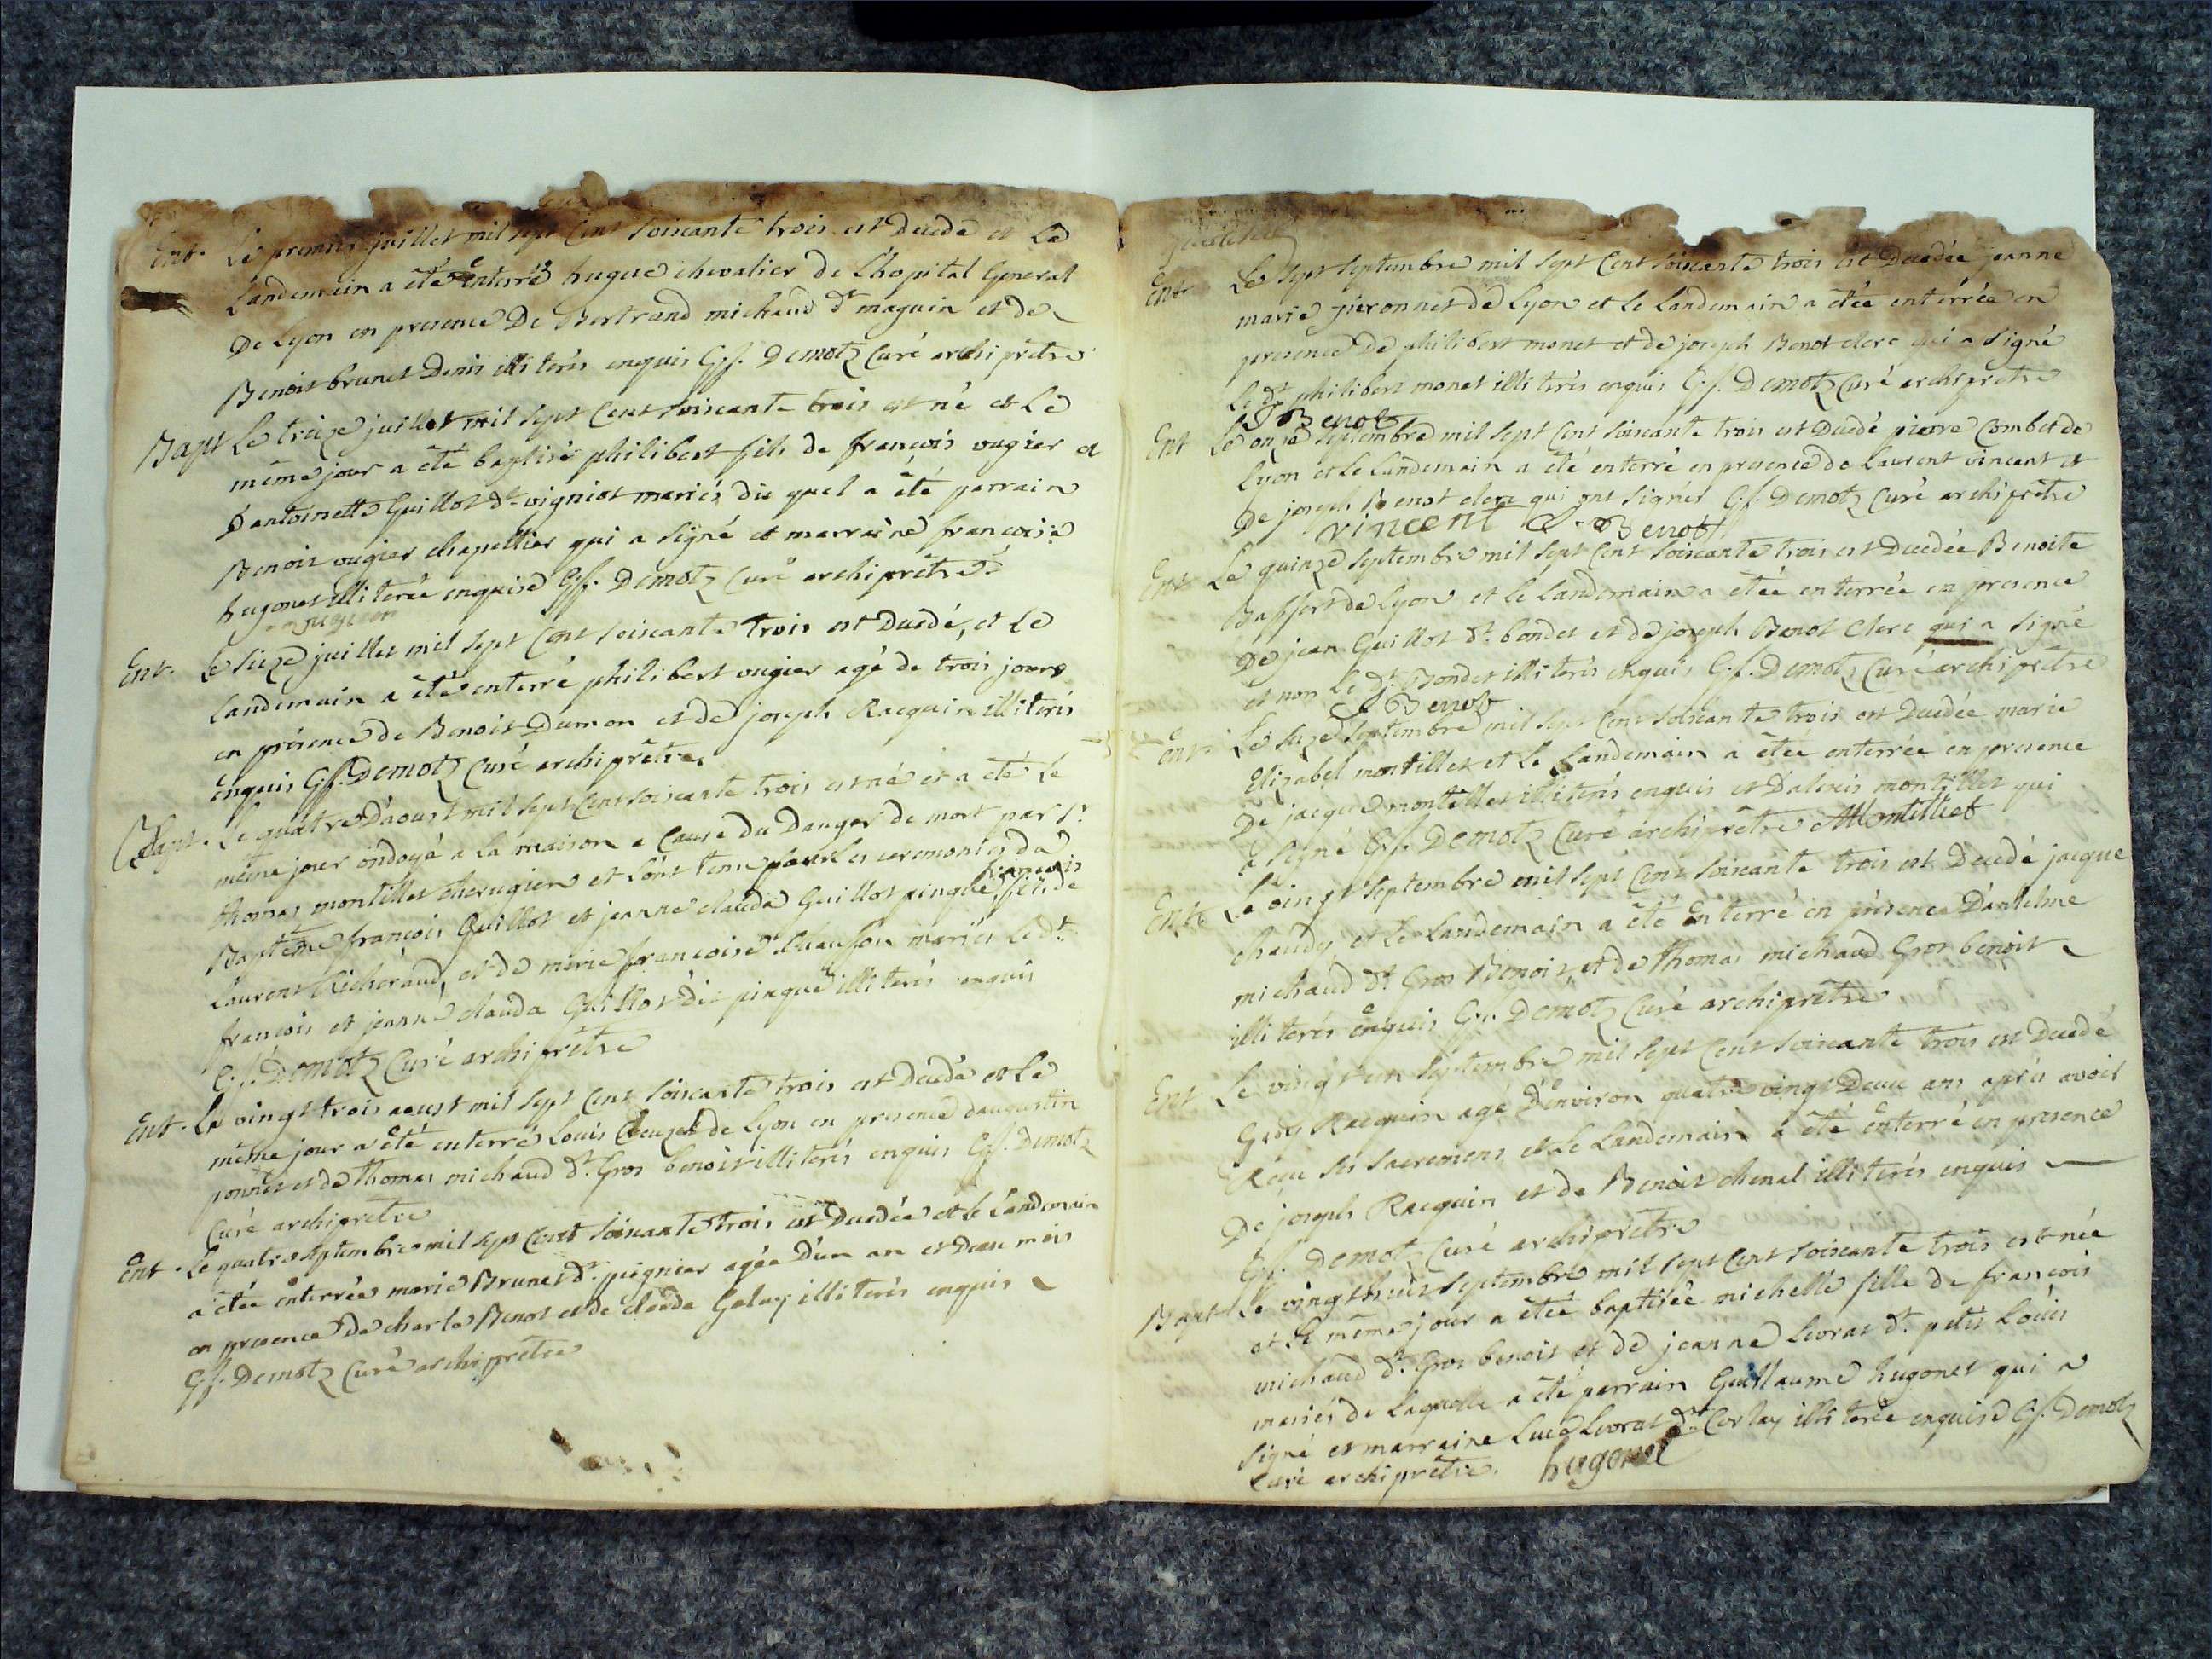 Ent. Le premier juillet mil sept Cent soiscante trois est Decedé et Le
Landemain a été Enterré hugue chevalier de L'hopital General
De Lyon en presence De Bertrand michaud dt maguin et de
Benoit brunet Denis illiterés enquis Gf. Demotz Curé archiprêtre
Bapt Le treize juillet mil sept Cent soiscante trois est né et Le
même jour a été baptisé philibert fils de françois ougier et
d'antoinette Guillot dt vigniot mariés du quel a été parrain
Benoit ougier chapellier qui a signé et marraine françoise
hugonet illiterée enquise Gf. Demotz Curé archiprêtre
Ent. Le sieze juillet mil sept Cent soiscante trois est Decedé, et Le
Landemain a été enterré philibert ougier agé de trois jours
en présence de Benoit Dumon et de joseph Racquin illiterés
enquis Gf. Demotz Curé archiprêtre
Bapt. Le quatre D'aoust mil sept Cent soiscante trois est né et a été Le
même jour ondoyé a La maison a Cause du Danger de mort par Sr
thomas montillet cherugien et L'ont tenu pour Les ceremonies du
françois
Baptême françois Guillot et jeanne clauda Guillot pingue, fils de
Laurent Richeraud, et de marie françoise Chausson mariés Le dt
françois et jeanne clauda Guillot dit pingue illiterés enquis
Gf. Demotz Curé archiprêtre
Ent. Le vingt trois aoust mil sept Cent soiscante trois est Decedé et Le
même jour a été enterré Louis de Lyon en presence d'augustin
ponnet et de thomas michaud dt Gros benoit illiterés enquis Gf. Demotz
Curé archiprêtre
Ent. Le quatre septembre mil sept Cent soiscante trois est Decedée et Le Landemain
a étée enterrée marie Brunet dt pignier agée D'un an et Deux mois
en presence de charle Benot et de claude Galay illiterés enquis
Gf. Demotz Curé archiprêtre
Ent. Le sept septembre mil sept Cent soiscante trois est Decedée jeanne
marie pieronnet de Lyon et Le Landemain a étée enterrée en
presence De philibert monet et de joseph Benot clerc qui a signé
Le dt philibert monet illiterés enquis Gf. Demotz Curé archiprêtre
J Benot
Ent Le onze septembre mil sept Cent soiscante trois est Decedé pierre Combet de
Lyon et Le Landemain a été enterré en presence de Laurent vincent et
De joseph Benot clerc qui ont signés Gf. Demotz Curé archiprêtre
vincent J. Benot
Ent. Le quinze septembre mil sept Cent soiscante trois est Decedée Benoite
Baffert de Lyon et Le Landemain a étée enterrée en presence
De jean Guillot dt bondet et de joseph Benot Clerc qui a signé
et non Le dt Bondet illiterés enquis Gf. Demotz Curé archiprêtre
J Benot
Ent. Le sieze septembre mil sept Cent soiscante trois est Decedée marie
Elizabel montillet et Le Landemain a étée enterrée en presence
De jacque montillet illiterés enquis et D'alexis montillet qui
a signé Gf. Demotz Curé archiprêtre AMontillet
Ent Le vingt septembre mil sept Cent soiscante trois est Decedé jacque
chaudy, et Le Landemain a été Enterré en présence D'antelme
michaud dt Gros Benoit, et de thomas michaud Gros benoit
illiterés enquis Gf. Demotz Curé archiprêtre
Ent Le vingt un septembre mil sept Cent soiscante trois est Decedé
Racquin agé D'environ quatre vingt Deux ans après avoir
Reçue ses sacremens et Le Landemain a été enterré en presence
De joseph Racquin et de Benoit chenal illiterés enquis
Gf. Demotz Curé archiprêtre
Bapt Le vingt huit septembre mil sept Cent soiscante trois est née
et Le même jour a étée baptisée michelle fille de françois
michaud dt Gros benoit et de jeanne Livrat dt petit Louis
mariés de Laquelle a été parrain Guillaume hugonet qui a
signé et marraine Luce Livrat dt Corlay illiterée enquise Gf. Demotz
Curé archiprêtre. hugonet